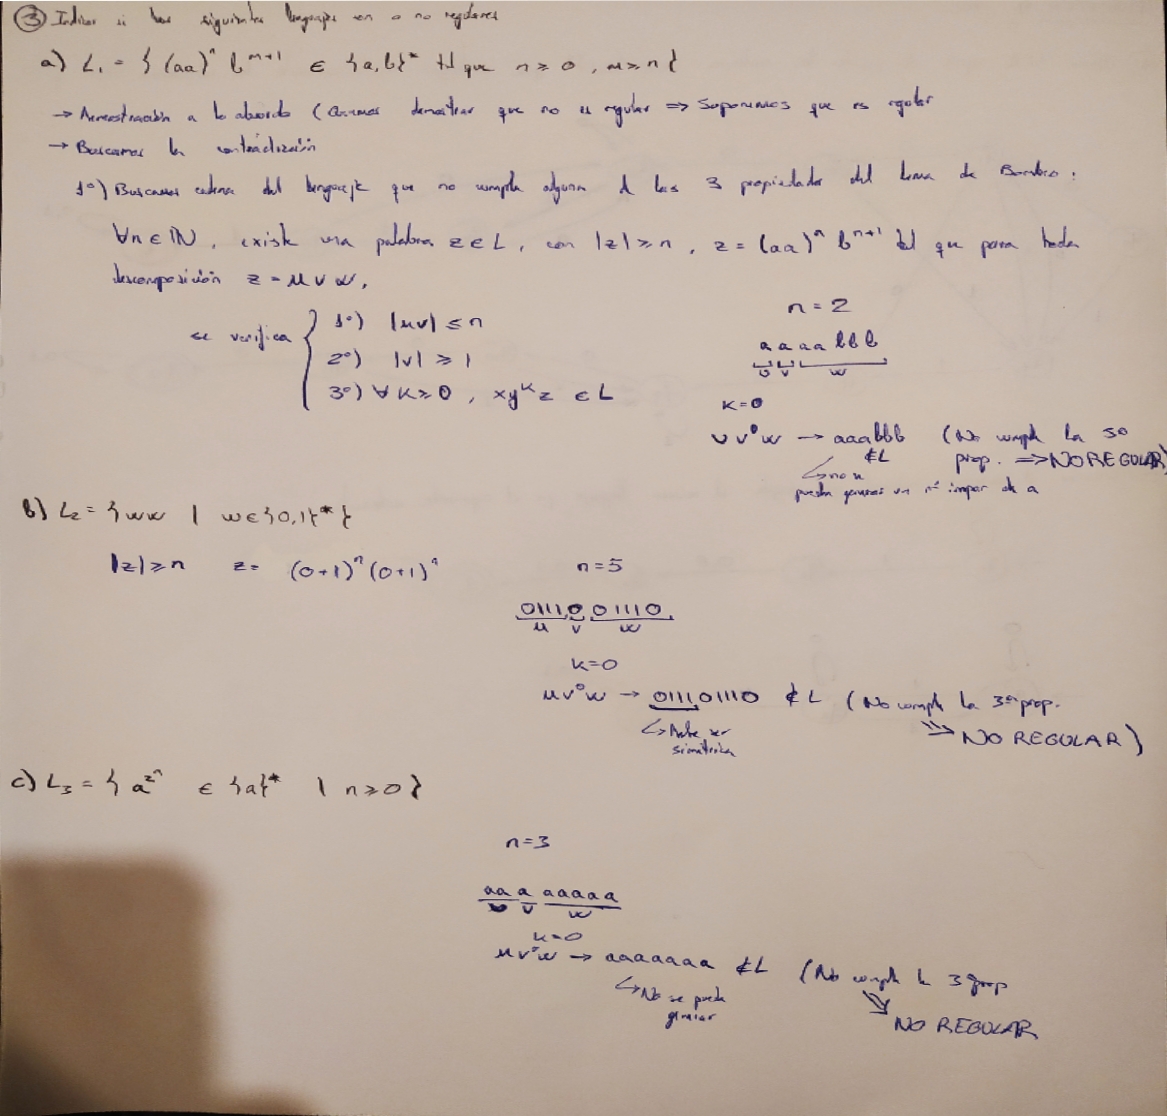 ③ Indicar si los siguientes lenguajes son o no regulares
a) L₁ = { (aa)ⁿ bᵐ⁺¹ ∈ {a,b}* tal que n ≥ 0 , m ≥ n }
→ Demostración a lo absurdo (Queremos demostrar que no es regular ⇒ Suponemos que es regular
→ Buscamos la contradicción
1º) Buscamos cadena del lenguaje que no cumpla alguna d las 3 propiedades del Lema de Bombeo :
∀n ∈ ℕ , existe una palabra z ∈ L , con |z| ≥ n , z = (aa)ⁿ bⁿ⁺¹ tal que para toda
descomposición z = u v w,
se verifica { 1º) |uv| ≤ n
2º) |v| ≥ 1
3º) ∀ k ≥ 0 , xyᵏz ∈ L
n = 2
a a a a b b b
u v w
k=0
u v⁰ w → aaabbb (No cumple la 3º
∉L prop. ⇒ NO REGULAR)
↳ no se
puede generar un nº impar de a
b) L₂ = { ww | w ∈ {0,1}* }
|z| ≥ n z = (0+1)ⁿ (0+1)ⁿ n = 5
01110 01110
u v w
k=0
u v⁰ w → 011101110 ∉ L (No cumple la 3ª prop.
↳ Debe ser
simétrica
⇒ NO REGULAR)
c) L₃ = { a^2ⁿ ∈ {a}* | n ≥ 0 }
n=3
aa a aaaaa
u v w
k=0
u v⁰ w → aaaaaaa ∉ L (No cumple la 3 prop
↳ No se puede
generar
⇒ NO REGULAR